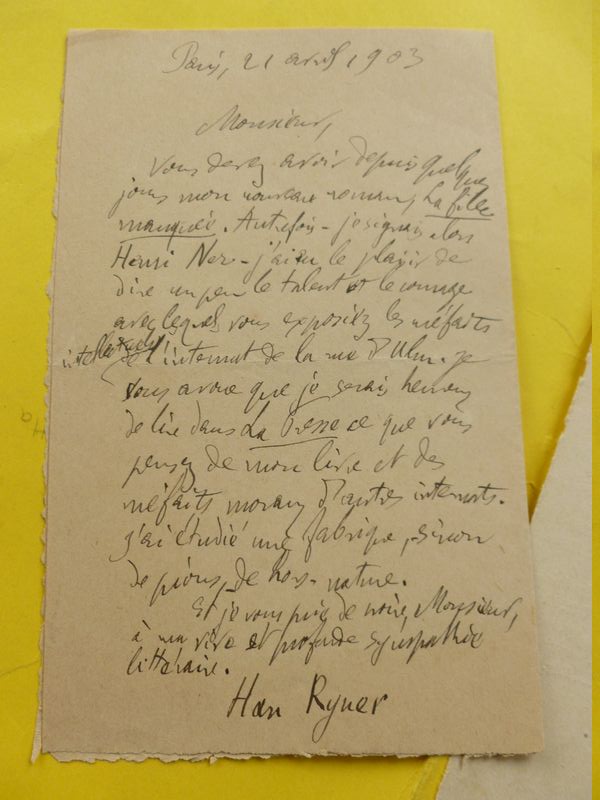 Paris, 21 avril 1903
Monsieur,
Vous devez avoir depuis quelques
jours mon nouveau roman, La fille
manquée. Autrefois - je signais alors
Henri Ner - j'ai eu le plaisir de
dire un peu le talent et le courage
avec lequel vous exposiez les méfaits
intellectuels
de l'internat de la rue d'Ulm. Je
vous avoue que je serais heureux
de lire dans La Presse ce que vous
pensez de mon livre et des
méfaits moraux d'autres internats.
J'ai étudié une fabrique, sinon
de pions, de hors-nature.
Et je vous prie de croire, Monsieur,
à ma vive et profonde sympathie
littéraire.
Han Ryner